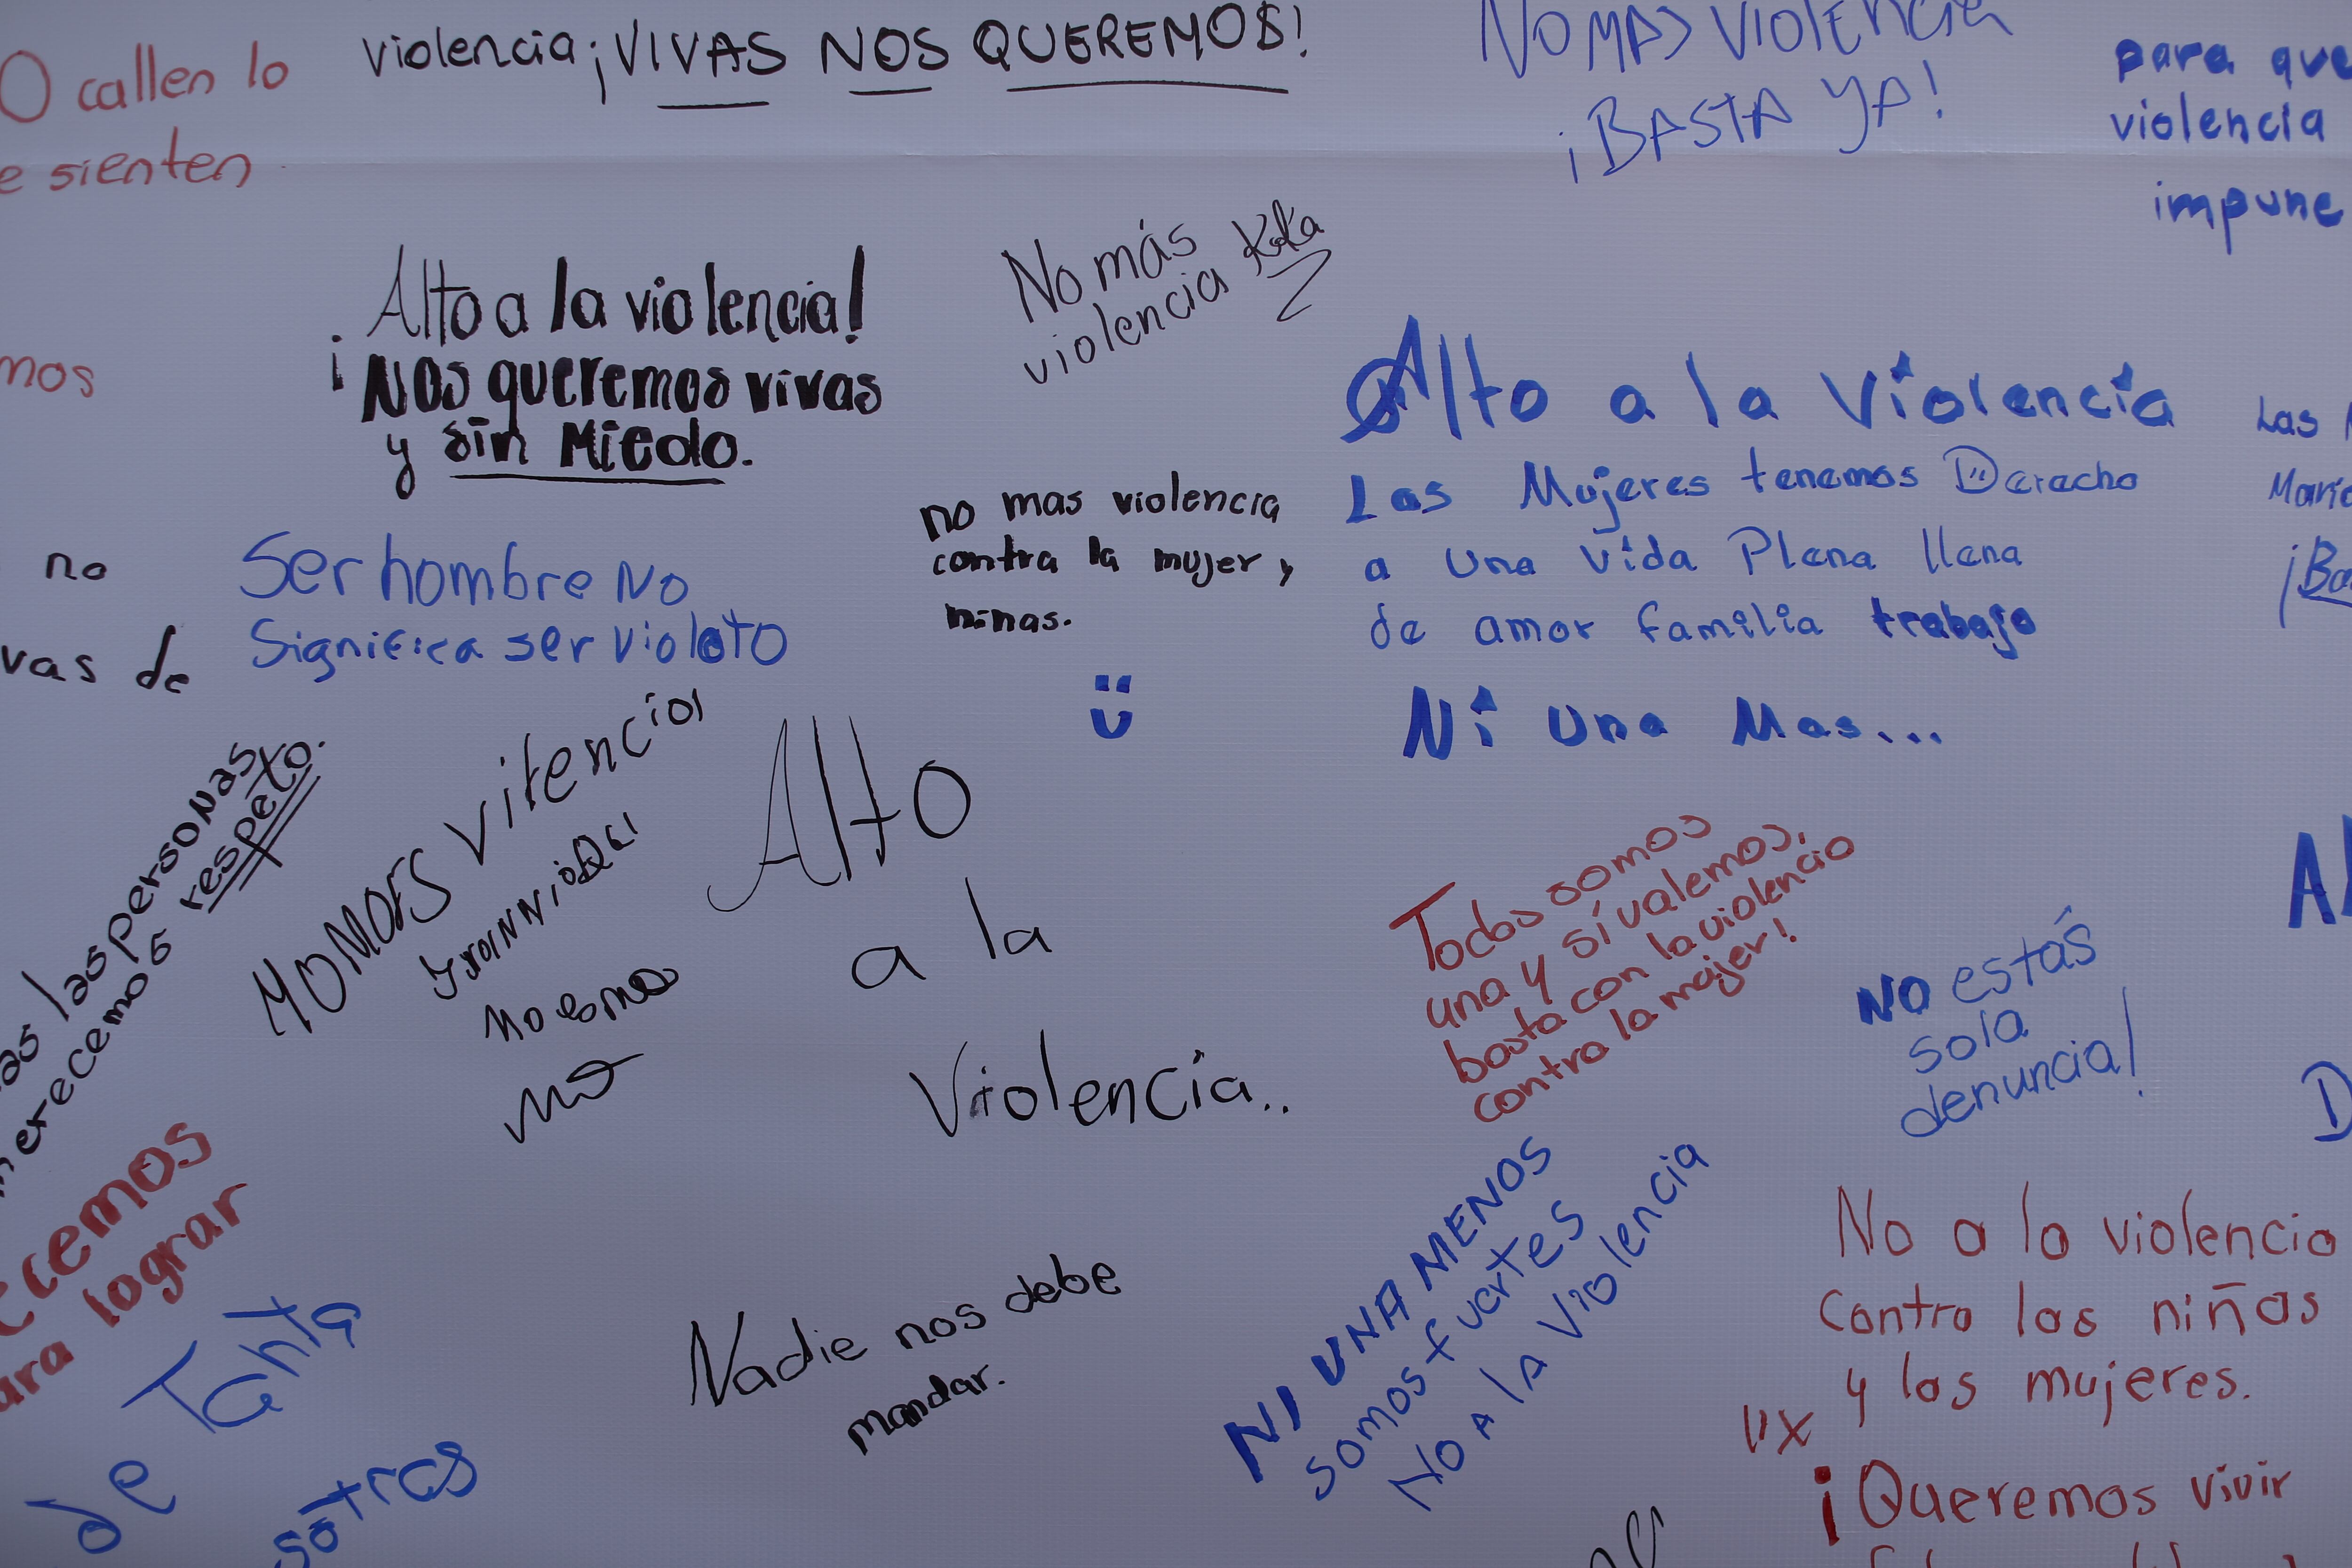 violencia ¡VIVAS NOS QUEREMOS!
NO MAS VIOLENCIA
¡BASTA YA!
para que
violencia
impune
O callen lo
e sienten
¡Alto a la violencia!
¡Nos queremos vivas
y sin Miedo.
No más
violencia
mos
Alto a la Violencia
Las Mujeres tenemos Derecho
a una vida Plena llena
de amor familia trabajo
Ni una Mas...
Las
no mas violencia
contra la mujer y
ninas.
no
vas de
Ser hombre No
Significa ser violoto
las personas
merecemos respeto.
Alto
a la
Violencia..
Todos somos
una y sí valemos.
basta con la violencia
contra la mujer!
NO estás
sola
denuncia!
ecemos
ara lograr
de Tanta
sotras
Nadie nos debe
mandar.
NI UNA MENOS
somos fuertes
No A lA Violencia
No a la violencia
Contra las niñas
y las mujeres.
¡Queremos vivir